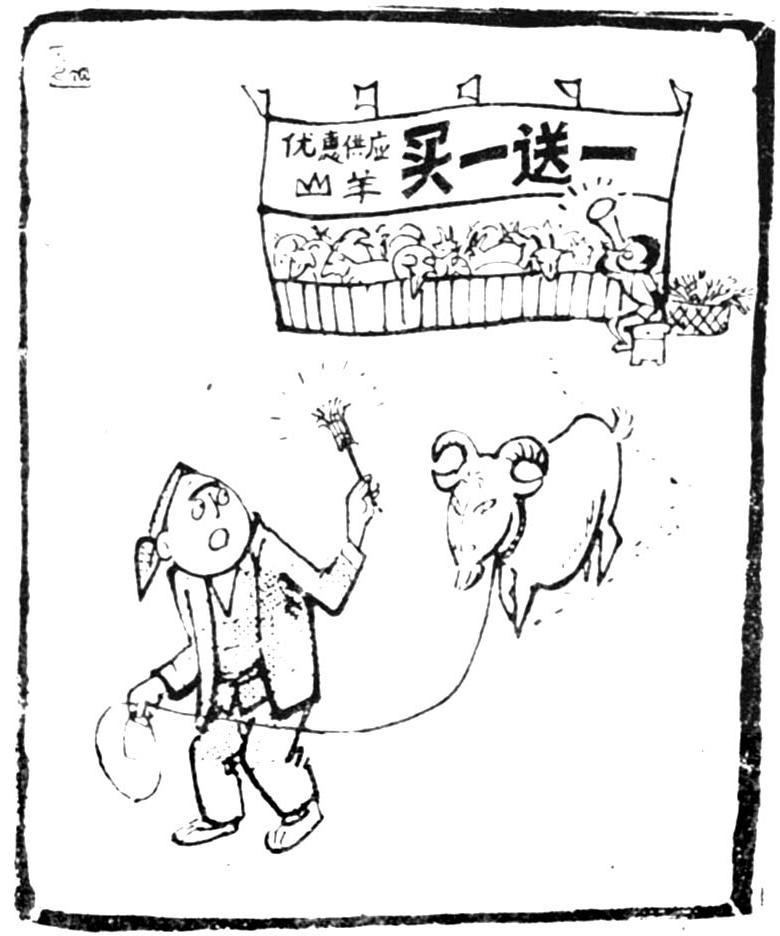 优惠供应
山羊
买一送一